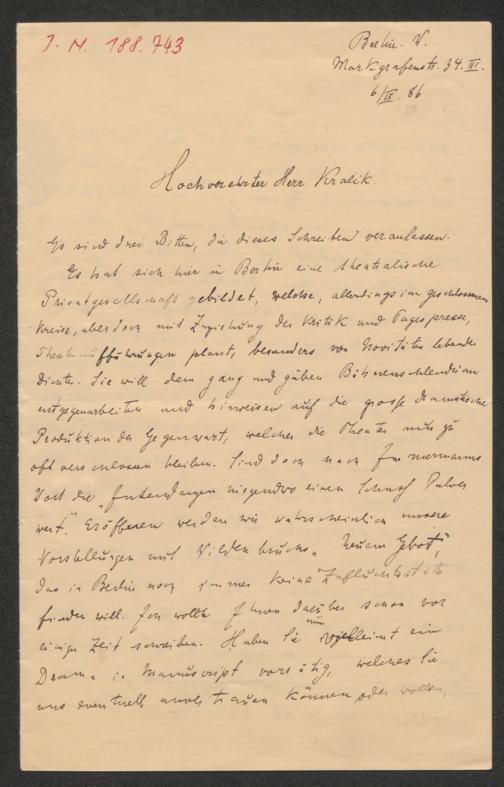 J. N. 188.743
Berlin. W.
Markgrafenstr. 34. III.
6/IX. 86
Hochverehrter Herr Kralik.
Es sind drei Bitten, die dieses Schreiben veranlassen.
Es hat sich hier in Berlin eine theatralische
Privatgesellschaft gebildet, welche, allerdings im geschlossenen
Kreise, aber doch mit Zuziehung der Kritik und Tagespresse,
Theateraufführungen plant, besonders von Novitäten lebender
Dichter. Sie will dem gang und gäben Bühnenschlendrian
entgegenarbeiten und hinweisen auf die große dramatische
Produktion der Gegenwart, welcher die Theater nur zu
oft verschlossen bleiben. Sind doch nach Immermanns
Wort die "Intendanzen nirgendwo einen Schuß Pulver
wert." Eröffnen werden wir wahrscheinlich unsere
Vorstellungen mit Wildenbruchs "Neuem Gebot",
das in Berlin noch immer keine Zufluchtsstätte
finden will. Ich wollte Ihnen darüber schon vor
einiger Zeit schreiben. Haben Sie nun vielleicht ein
Drama in Manuscript vorrätig, welches Sie
uns eventuell anvertrauen können oder wollen,